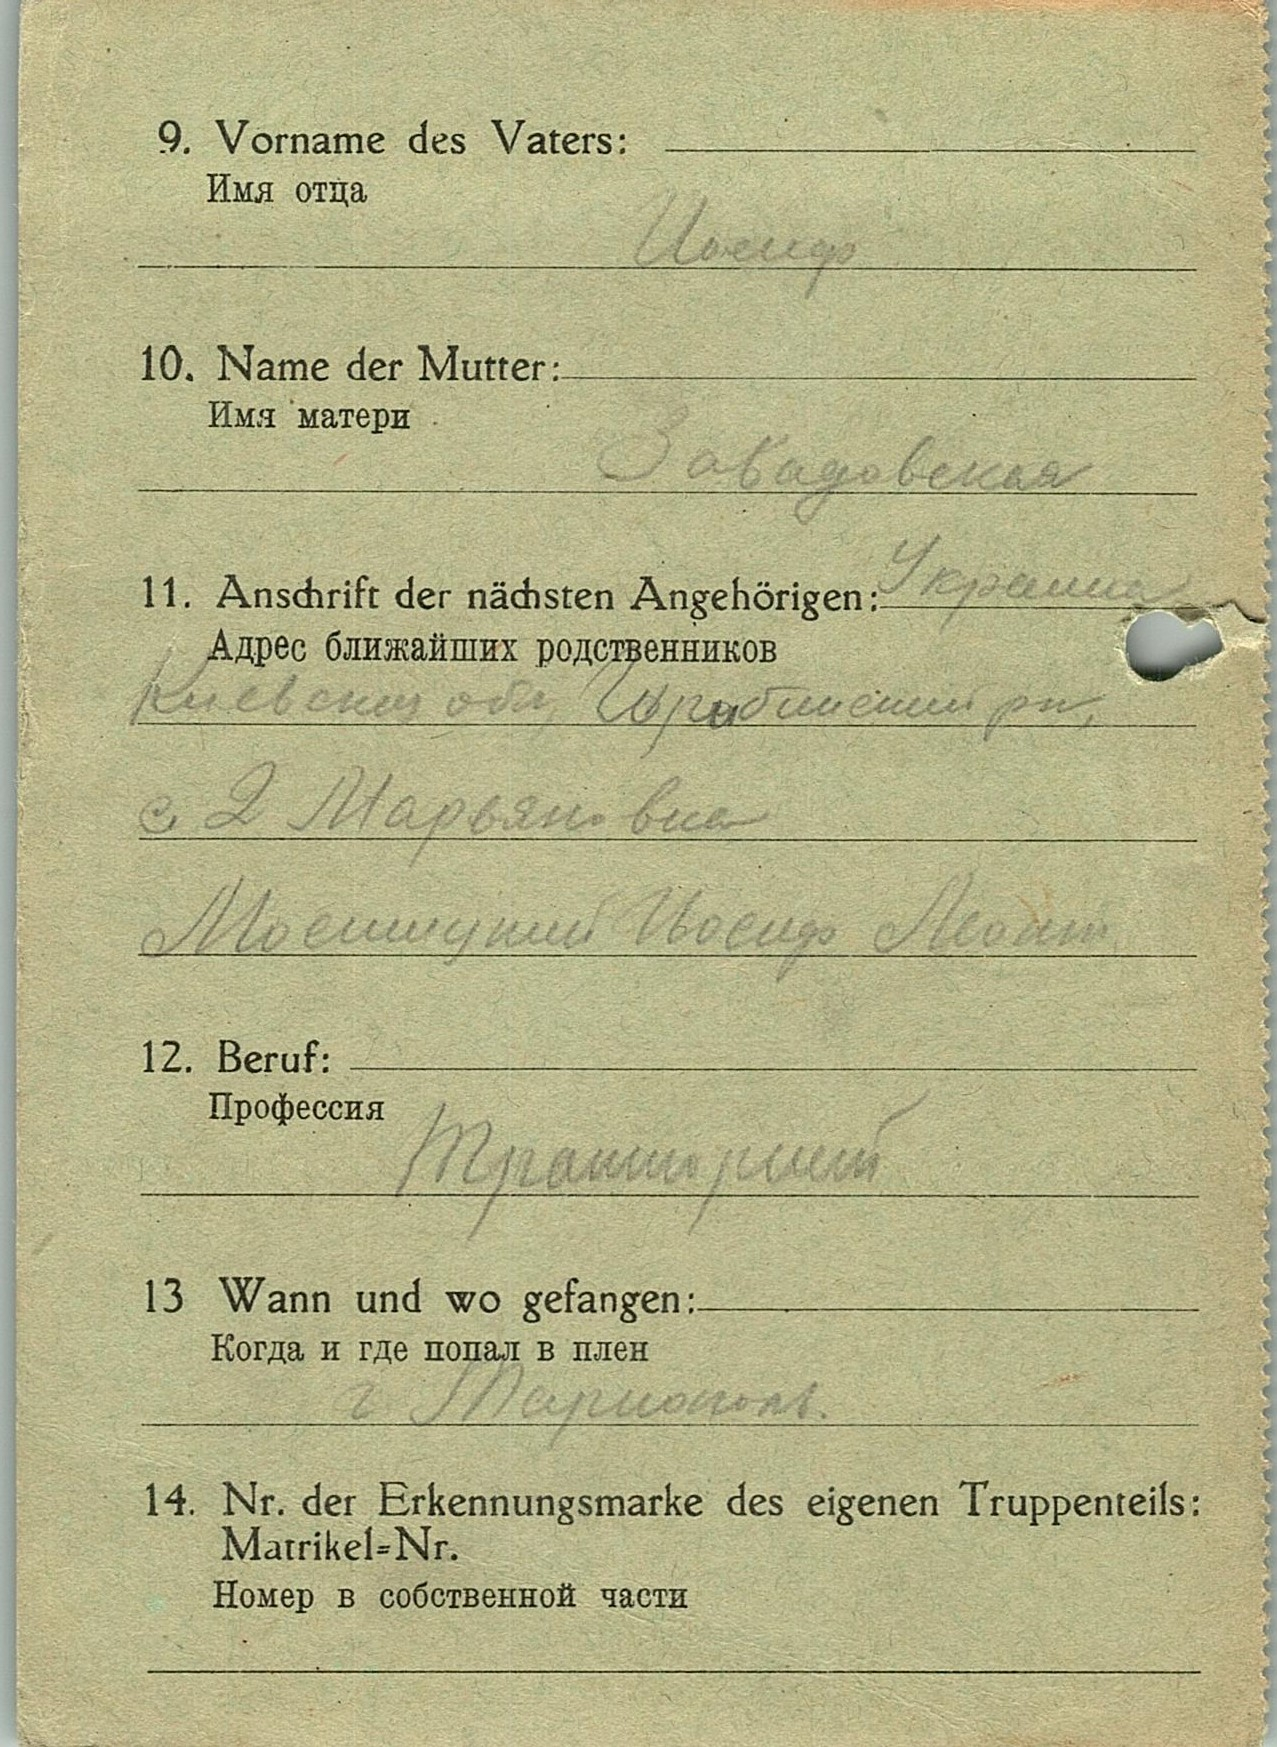 9. Vorname des Vaters:
Имя отца
Иосиф
10. Name der Mutter:
Имя матери
Завадовская
11. Anschrift der nächsten Angehörigen: Украина
Адрес ближайших родственников
Киевская обл,
с. 2 Марьяновка
Иосиф
12. Beruf:
Профессия
Тракторист
13 Wann und wo gefangen:
Когда и где попал в плен
г Мариополь.
14. Nr. der Erkennungsmarke des eigenen Truppenteils:
Matrikel=Nr.
Номер в собственной части